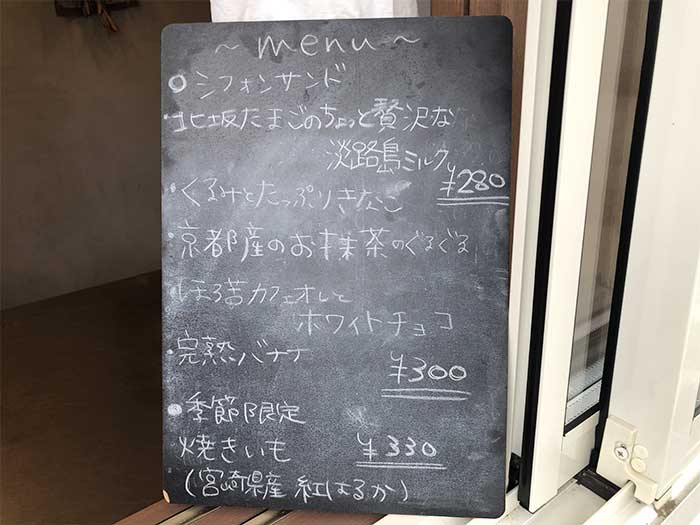 ～menu～
○シフォンサンド
・北坂たまごのちょっと贅沢な
淡路島ミルク
¥280
・くるみとたっぷりきなこ
・京都産のお抹茶のぐるぐる
・ほろ苦カフェオレと
ホワイトチョコ
・完熟バナナ
¥300
●季節限定
焼きいも ¥330
(宮崎県産 紅はるか)